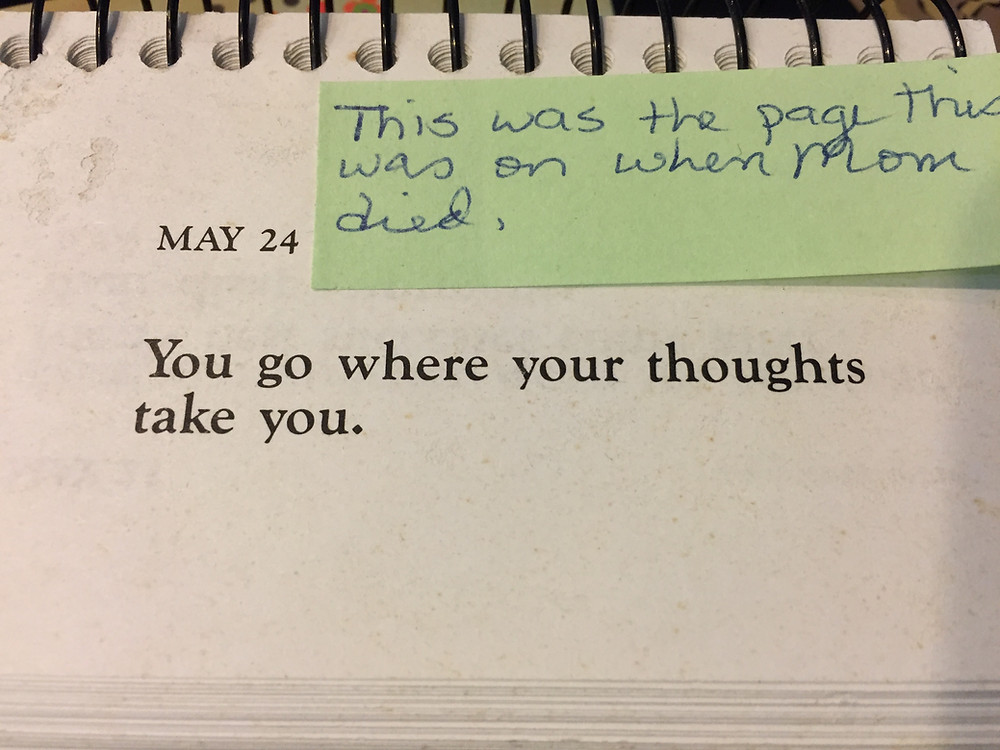 This was the page This
was on when Mom
died.
MAY 24
You go where your thoughts
take you.